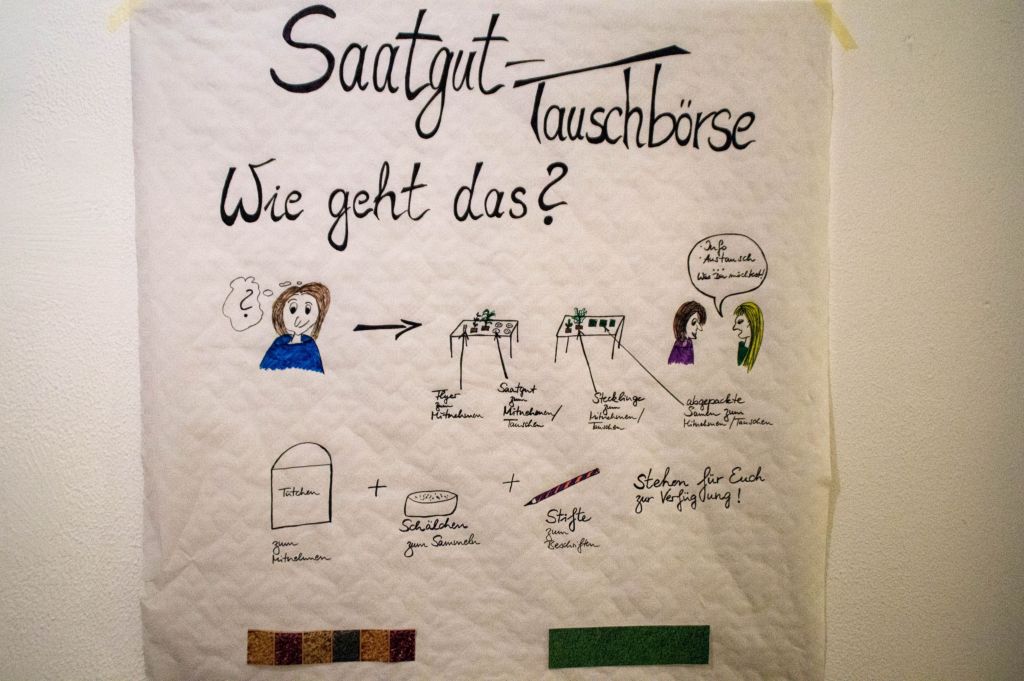 Saatgut-
Tauschbörse
Wie geht das?
?
· Info
· Austausch
Was Ihr möchtet!
Flyer
zum
Mitnehmen
Saatgut
zum
Mitnehmen/
Tauschen
Stecklinge
zum
Mitnehmen/
Tauschen
abgepackte
Samen zum
Mitnehmen/Tauschen
Tütchen
zum
Mitnehmen
+
Schälchen
zum Sammeln
+
Stifte
zum
Beschriften
Stehen für Euch
zur Verfügung!